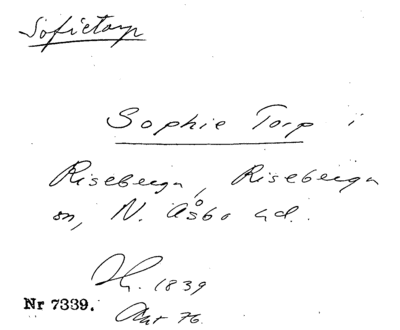 Sofietorp
Sophie Torp i
Riseberga, Riseberga
sn, N. Åsbo hd.
1839
Nr 7339.
76